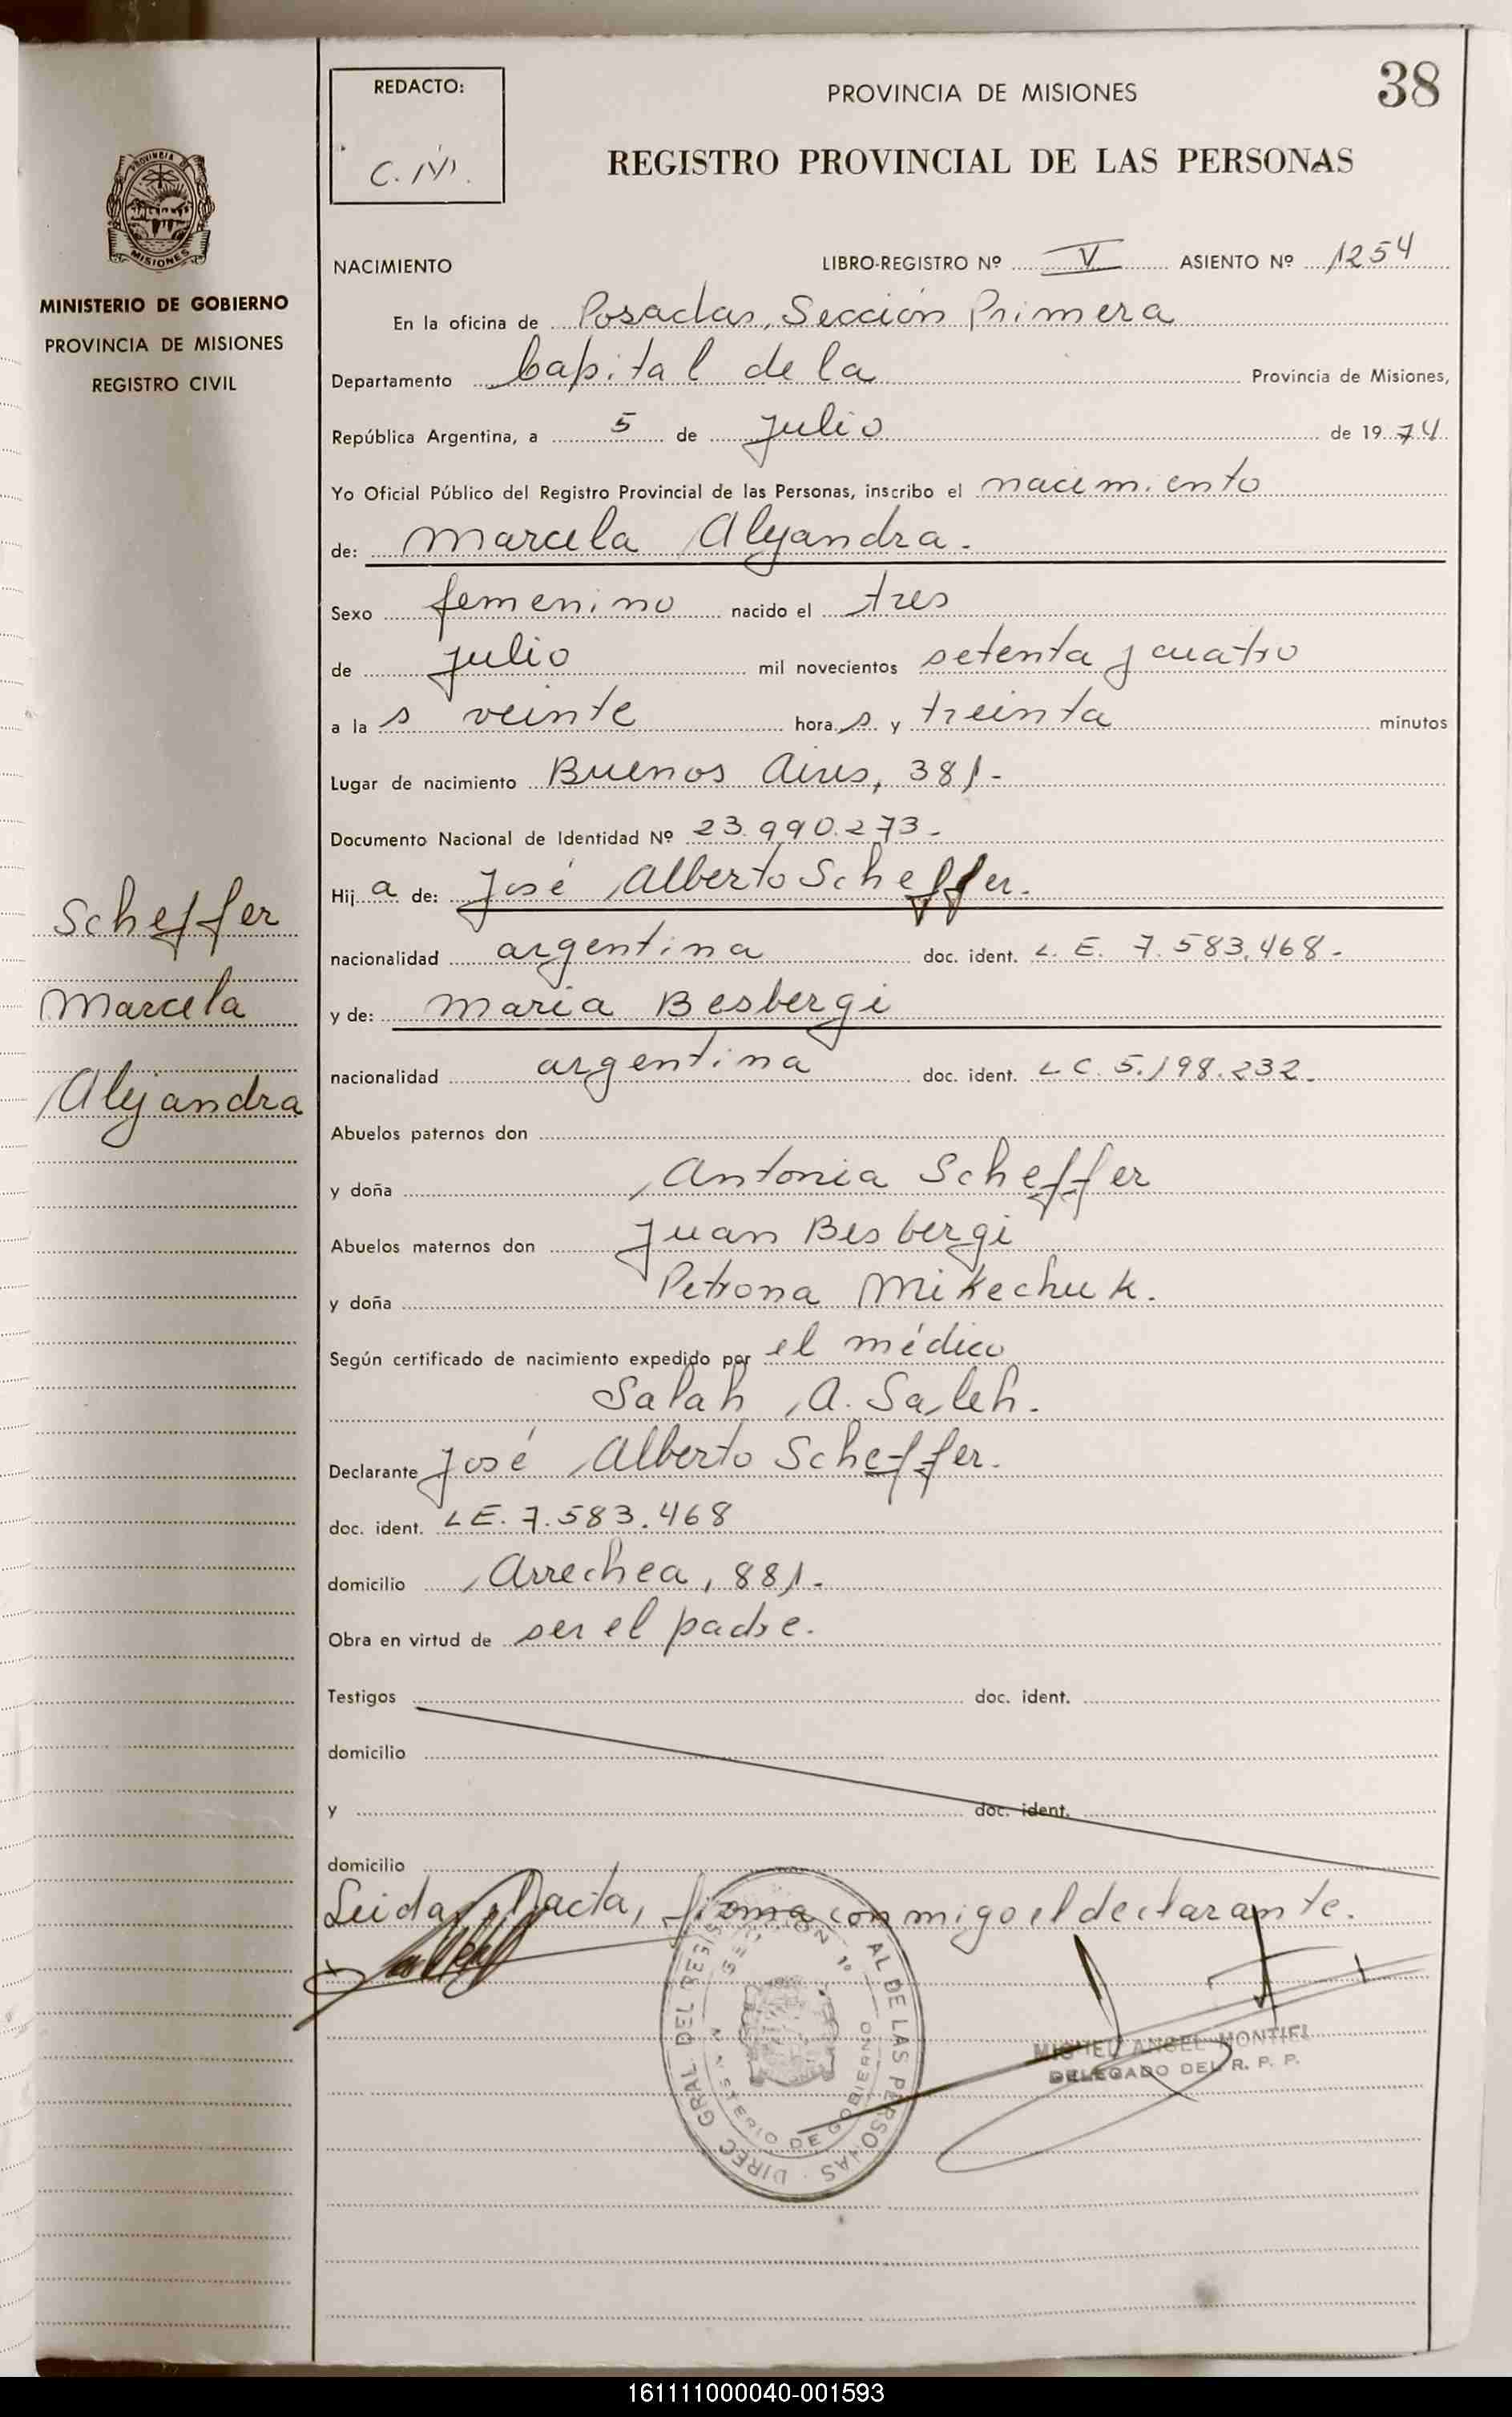 38
REDACTO:
PROVINCIA DE MISIONES
REGISTRO PROVINCIAL DE LAS PERSONAS
PROVINCIA DE
MISIONES
MINISTERIO DE GOBIERNO
PROVINCIA DE MISIONES
REGISTRO CIVIL
NACIMIENTO LIBRO-REGISTRO Nº V ASIENTO Nº 1254
En la oficina de Posadas, Sección Primera
Departamento Capital de la Provincia de Misiones,
República Argentina, a 5 de Julio de 1974
Yo Oficial Público del Registro Provincial de las Personas, inscribo el nacimiento
de: Marcela Alejandra.
Sexo femenino nacido el tres
de Julio mil novecientos setenta y cuatro
a la s veinte hora s y treinta minutos
Lugar de nacimiento Buenos Aires, 381-
Documento Nacional de Identidad Nº 23.990.273-
Hij a de: José Alberto Scheffer.
nacionalidad argentina doc. ident. L.E. 7.583.468-
y de: Maria Besbergi
nacionalidad argentina doc. ident. L.C. 5.198.232.
Abuelos paternos don
y doña Antonia Scheffer
Abuelos maternos don Juan Besbergi
y doña Petrona Mikechuk.
Según certificado de nacimiento expedido por el médico
Salah A. Saleh.
Declarante José Alberto Scheffer.
doc. ident. LE. 7.583.468
domicilio Arrechea, 881.
Obra en virtud de ser el padre.
Testigos doc. ident.
domicilio
y doc. ident.
domicilio
Leida el acta, firma con migo el declarante.
Scheffer
Marcela
Alejandra
DIREC. GRAL DEL REGIS AL DE LAS PERSONAS
SECCION 1º
MINISTERIO DE GOBIERNO
MIGUEL ANGEL MONTIEL
DELEGADO DEL R. P. P.
161111000040-001593